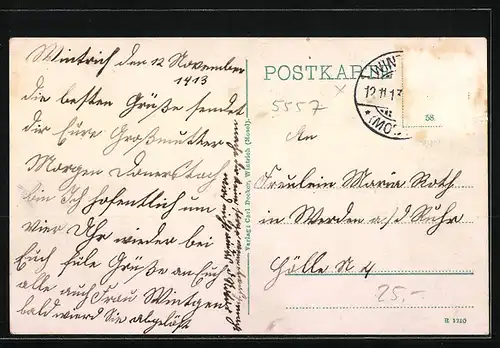 Wintrich den 12 November
1913
Die besten Grüße sendet
dir Eure Großmutter
Morgen Donerstach
bin Ich hofentlich um
vier Uhr wieder bei
Euch fiele Grüße an Euch
alle auch Frau Wintgen
bald wierd Sie abgelöst
Verlag: Carl Decker, Wintrich (Mosel).
POSTKARTE
WINT
12.11.13
* (MO
58.
5557
An
Fräulein Maria Roth
in Werden a/d Ruhr
Hölle N 4
25.-
R 1220